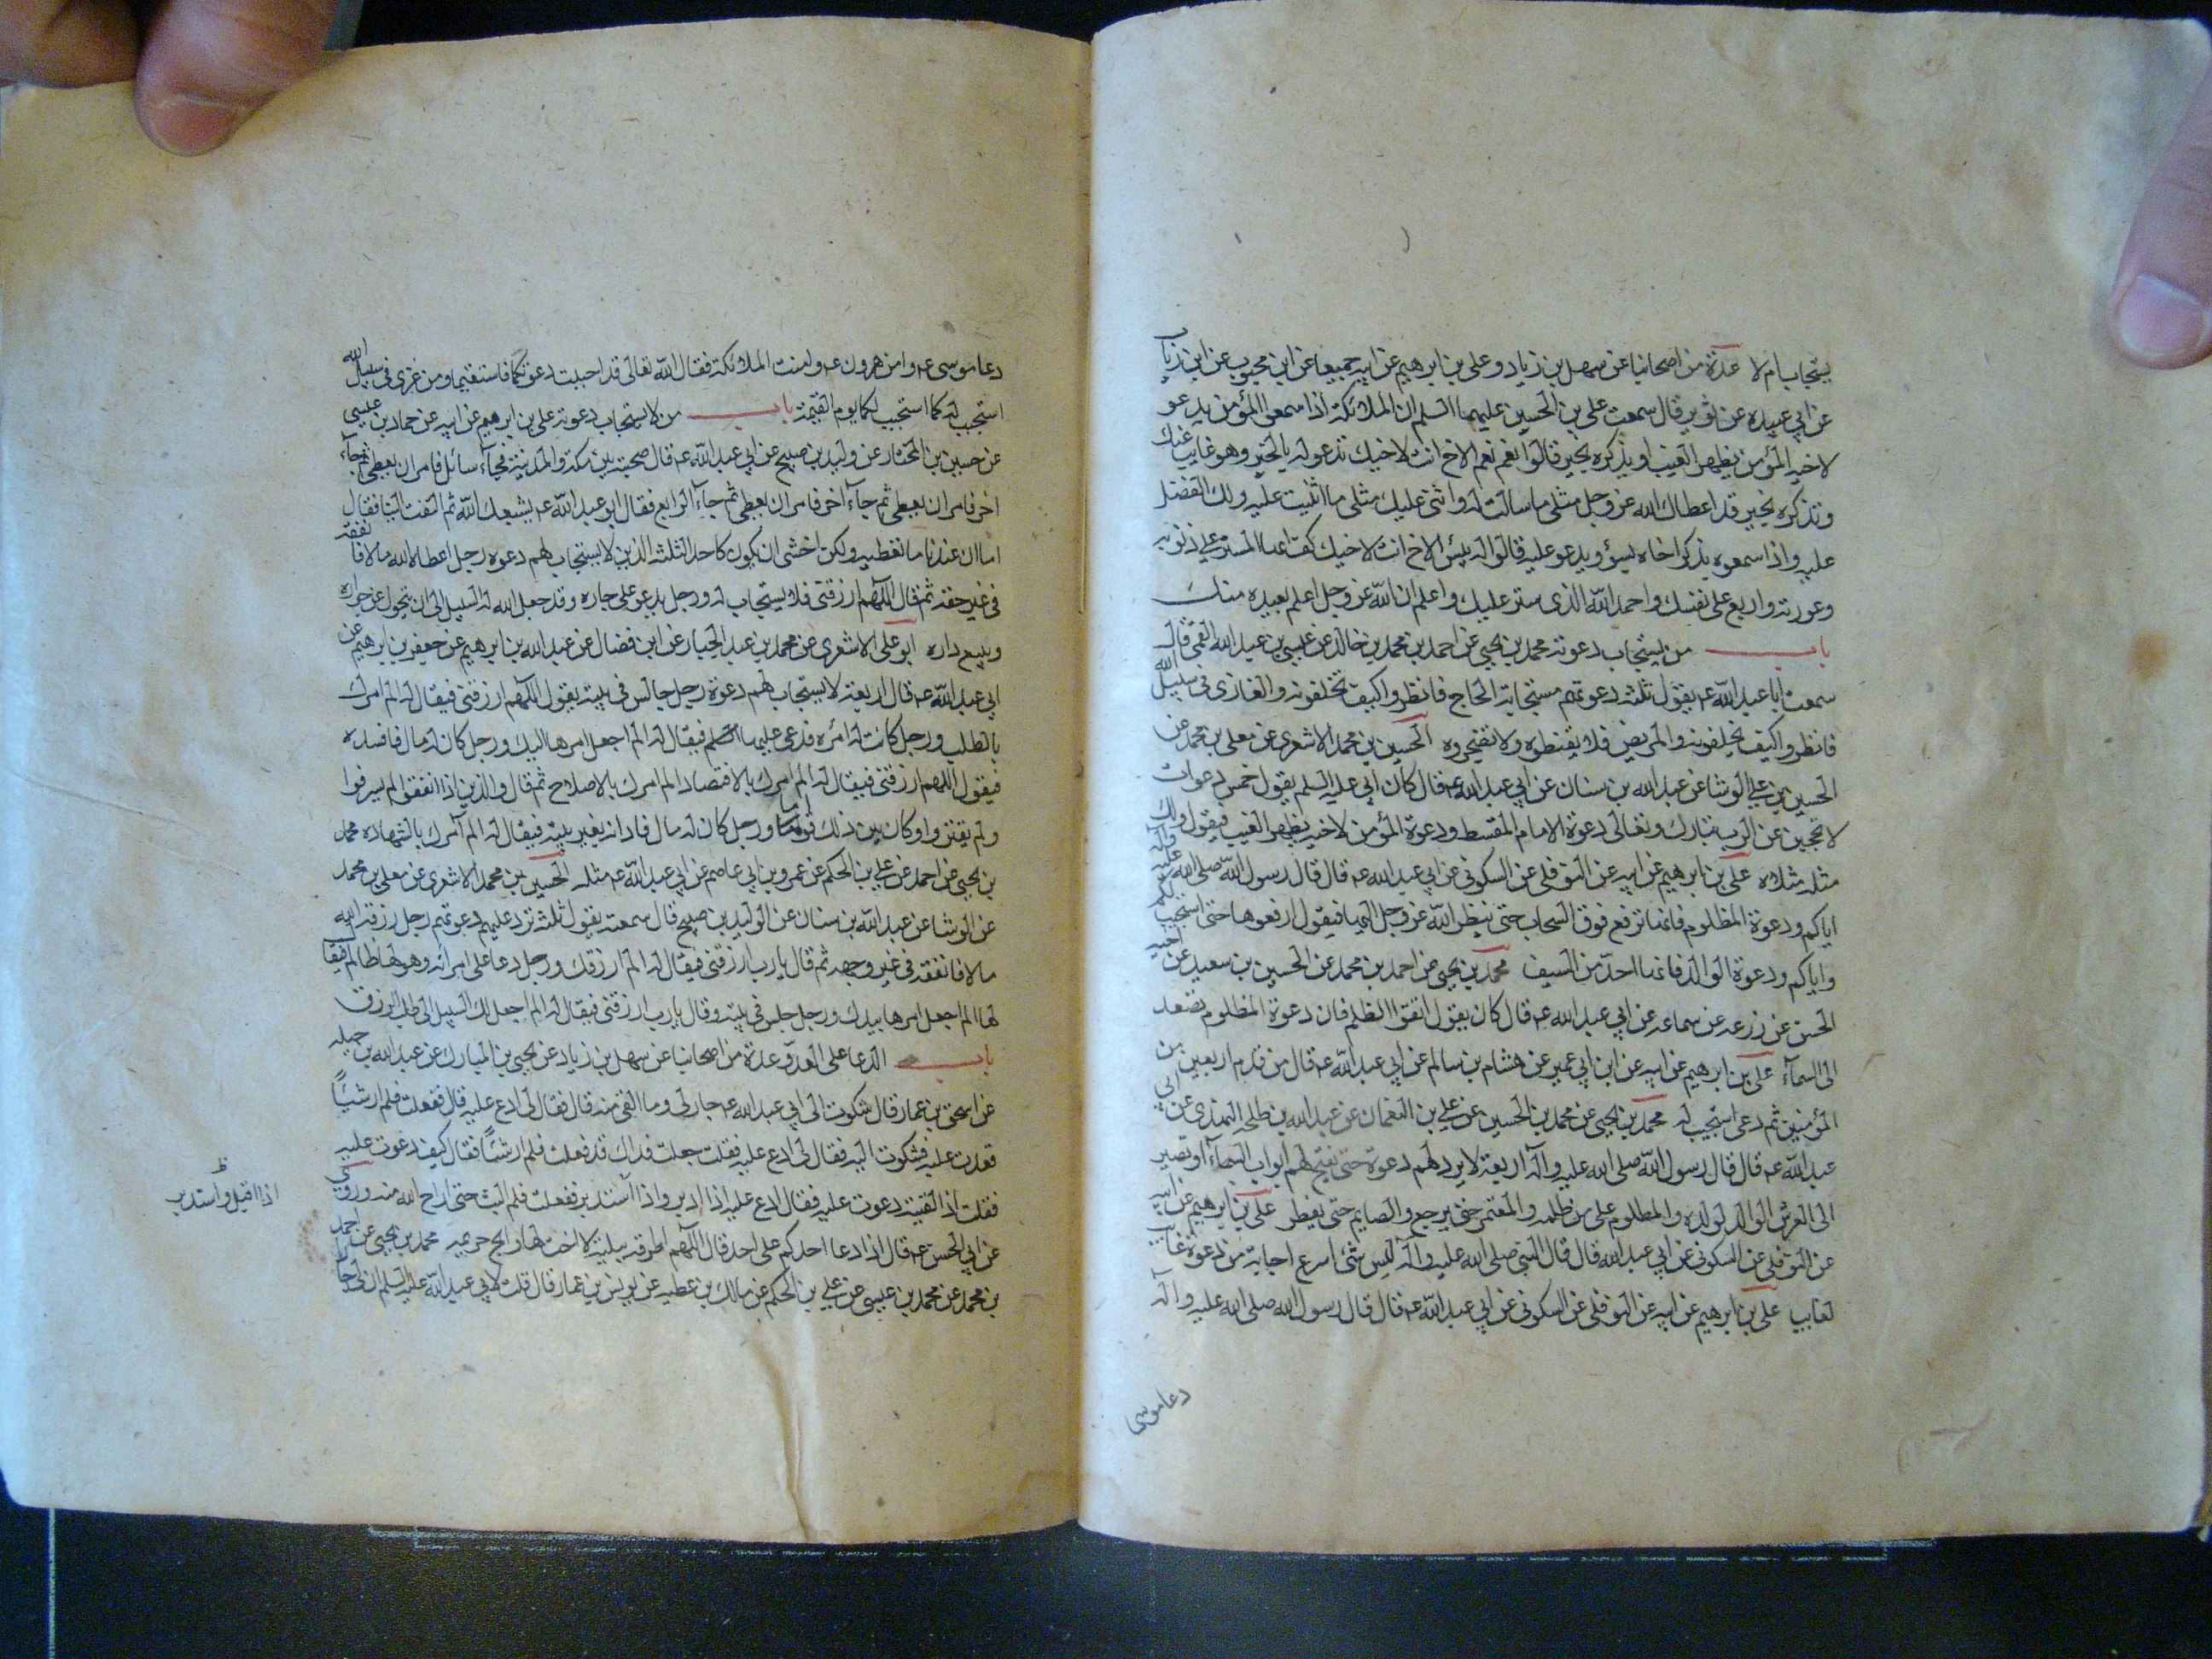 يستجاب ام لا عدة من اصحابنا عن سهل بن زياد وعلى بن ابرهيم عن ابيه جميعا عن ابن محبوب عن ابن رياب
عن ابي عبيده عن ثوير قال سمعت على بن الحسين عليهما السلم ان الملائكة اذا سمعوا المؤمن يدعو
لاخيه المؤمن بظهر الغيب او يذكره بخير قالوا نعم نعم الاخ انت لاخيك تدعو له بالخير وهو غايب عنك
وتذكره بخير قد اعطاك الله عز وجل مثلى ما سالت له واثنى عليك مثلى ما اثنيت عليه ولك الفضل
عليه واذا سمعوه يذكر اخاه بسوؤ ويدعو عليه قالوا له بئس الاخ انت لاخيك كف ايها المستر على ذنوبه
وعورته واربع على نفسك واحمد الله الذى ستر عليك واعلم ان الله عز وجل اعلم بعبده منك
باب من يستجاب دعوته محمد بن يحيى عن احمد بن محمد بن خالد عن عيسى بن عبد الله القمى قال
سمعت ابا عبد الله عه يقول ثلثه دعوتهم مستجابة الحاج فانظروا كيف تخلفونه والغازى فى سبيل الله
فانظروا كيف تخلفونه والمريض فلا تغيظوه ولا تضجروه الحسين بن محمد الاشعرى عن معلى بن محمد عن
الحسين بن على الوشا عن عبد الله بن سنان عن ابي عبد الله عه قال كان ابي عليه السلم يقول خمس دعوات
لا تحجبن عن الرب تبارك وتعالى دعوة الامام المقسط ودعوة المؤمن لاخيه بظهر الغيب فيقول ولك
مثله مثلاه على بن ابرهيم عن ابيه عن النوفلى عن السكونى عن ابي عبد الله عه قال قال رسول الله صلى الله عليه واله
اياكم ودعوة المظلوم فانها ترفع فوق السحاب حتى ينظر الله عز وجل اليها فيقول ارفعوها حتى استجيب لكم
واياكم ودعوة الوالد فانها احد من السيف محمد بن يحيى عن احمد بن محمد عن الحسين بن سعيد عن اخيه
الحسن عن زرعه عن سماعه عن ابي عبد الله عه قال كان يقول اتقوا الظلم فان دعوة المظلوم تصعد
الى السمآء على بن ابرهيم عن ابيه عن ابن ابي عمير عن هشام بن سالم عن ابي عبد الله عه قال من قدم اربعين من
المؤمنين ثم دعى استجيب له محمد بن يحيى عن محمد بن الحسين عن على بن النعمان عن عبد الله بن طلحه النهدى عن ابي
عبد الله عه قال قال رسول الله صلى الله عليه واله اربعة لا يرد لهم دعوة حتى تفتح لهم ابواب السمآء او تصير
الى العرش الوالد لولده والمظلوم على من ظلمه والمعتمر حتى يرجع والصايم حتى يفطر على بن ابرهيم عن ابيه
عن النوفلى عن السكونى عن ابي عبد الله قال قال النبي صلى الله عليه واله ليس شئ اسرع اجابة من دعوة غايب
لغايب على بن ابرهيم عن ابيه عن النوفلى عن السكونى عن ابي عبد الله عه قال قال رسول الله صلى الله عليه واله
دعا موسى
دعا موسى عه وامن هرون عه وامنت الملائكة فقال الله تعالى قد اجيبت دعوتكما فاستقيما ومن غزى فى سبيل الله
استجيب له كما استجيب لكما يوم القيمة باب من لا يستجاب دعوته على بن ابرهيم عن ابيه عن حماد بن عيسى
عن حسين بن المختار عن وليد بن صبيح عن ابي عبد الله عه قال صحبته بين مكة والمدينة فجآء سائل فامر ان يعطى ثم جآء
اخر فامر ان يعطى ثم جآء اخر فامر ان يعطى ثم جآء الرابع فقال ابو عبد الله عه يشبعك الله ثم التفت الينا فقال
اما ان عندنا ما نعطيه ولكن اخشى ان نكون كاحد الثلثه الذين لا يستجاب لهم دعوه رجل اعطاه الله مالا فانفقه
فى غير حقه ثم قال اللهم ارزقنى فلا يستجاب له ورجل يدعو على جاره وقد جعل الله له السبيل الى ان يتحول عن جواره
ويبيع داره ابو على الاشعرى عن محمد بن عبد الجبار عن ابن فضال عن عبد الله بن ابرهيم عن جعفر بن ابرهيم عن
ابي عبد الله عه قال اربعة لا يستجاب لهم دعوة رجل جالس فى بيته يقول اللهم ارزقنى فيقال له الم امرك
بالطلب ورجل كانت له امره فدعى عليها فيقال له الم اجعل امرها اليك ورجل كان له مال فافسده
فيقول اللهم ارزقنى فيقال له الم امرك بالاقتصاد الم امرك بالاصلاح ثم قال والذين اذا انفقوا لم يسرفوا
ولم يقتروا وكان بين ذلك قواما ورجل كان له مال فادانه بغير بينه فيقال له الم آمرك بالشهاده محمد
بن يحيى عن احمد عن على بن الحكم عن عمرو بن ابي عاصم عن ابي عبد الله عه مثله الحسين بن محمد الاشعرى عن معلى بن محمد
عن الوشا عن عبد الله بن سنان عن الوليد بن صبيح قال سمعته يقول ثلثه ترد عليهم دعوتهم رجل رزقه الله
مالا فانفقه فى غير وجهه ثم قال يا رب ارزقنى فيقال له الم ارزقك ورجل دعا على امراته وهو لها ظالم فيقا
لها الم اجعل امرها بيدك ورجل جلس فى بيته وقال يا رب ارزقنى فيقال له الم اجعل لك السبيل الى طلب الرزق
باب الدعا على العدو عدة من اصحابنا عن سهل بن زياد عن يحيى بن المبارك عن عبد الله بن جبله
عن اسحق بن عمار قال شكوت الى ابي عبد الله عه جار لى وما القى منه قال فقال لى ادع عليه قال ففعلت فلم ار شيئاً
فعدت عليه فشكوت اليه فقال لى ادع عليه فقلت جعلت فداك قد فعلت فلم ار شيئاً فقال كيف دعوت عليه
فقلت اذا لقيته دعوت عليه فقال ادع عليه اذا ادبر واذا استدبر ففعلت فلم البث حتى اراح الله منه وروى
عن ابي الحسن عه قال اذا دعا احدكم على احد قال اللهم اطرقه ببلية لا اخت لها وابح حريمه محمد بن يحيى عن احمد
بن محمد عن محمد بن عيسى عن على بن الحكم عن مالك بن عطيه عن يونس بن عمار قال قلت لابي عبد الله عليه السلم ان لى جارا
اذا اقبل واستدبر